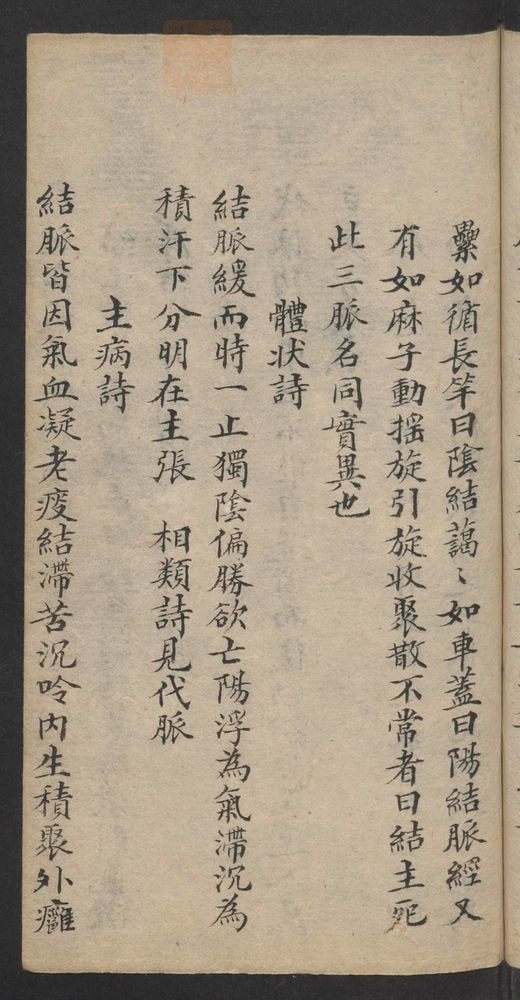 纍如循長竿曰陰結藹〻如車蓋曰陽結脈經又
有如麻子動搖旋引旋收聚散不常者曰結主死
此三脈名同實異也
體状詩
結脈緩而時一止獨陰偏勝欲亡陽浮為氣滯沉為
積汗下分明在主張 相類詩見代脈
主病詩
結脈皆因氣血凝老痰結滯苦沉吟内生積聚外癰